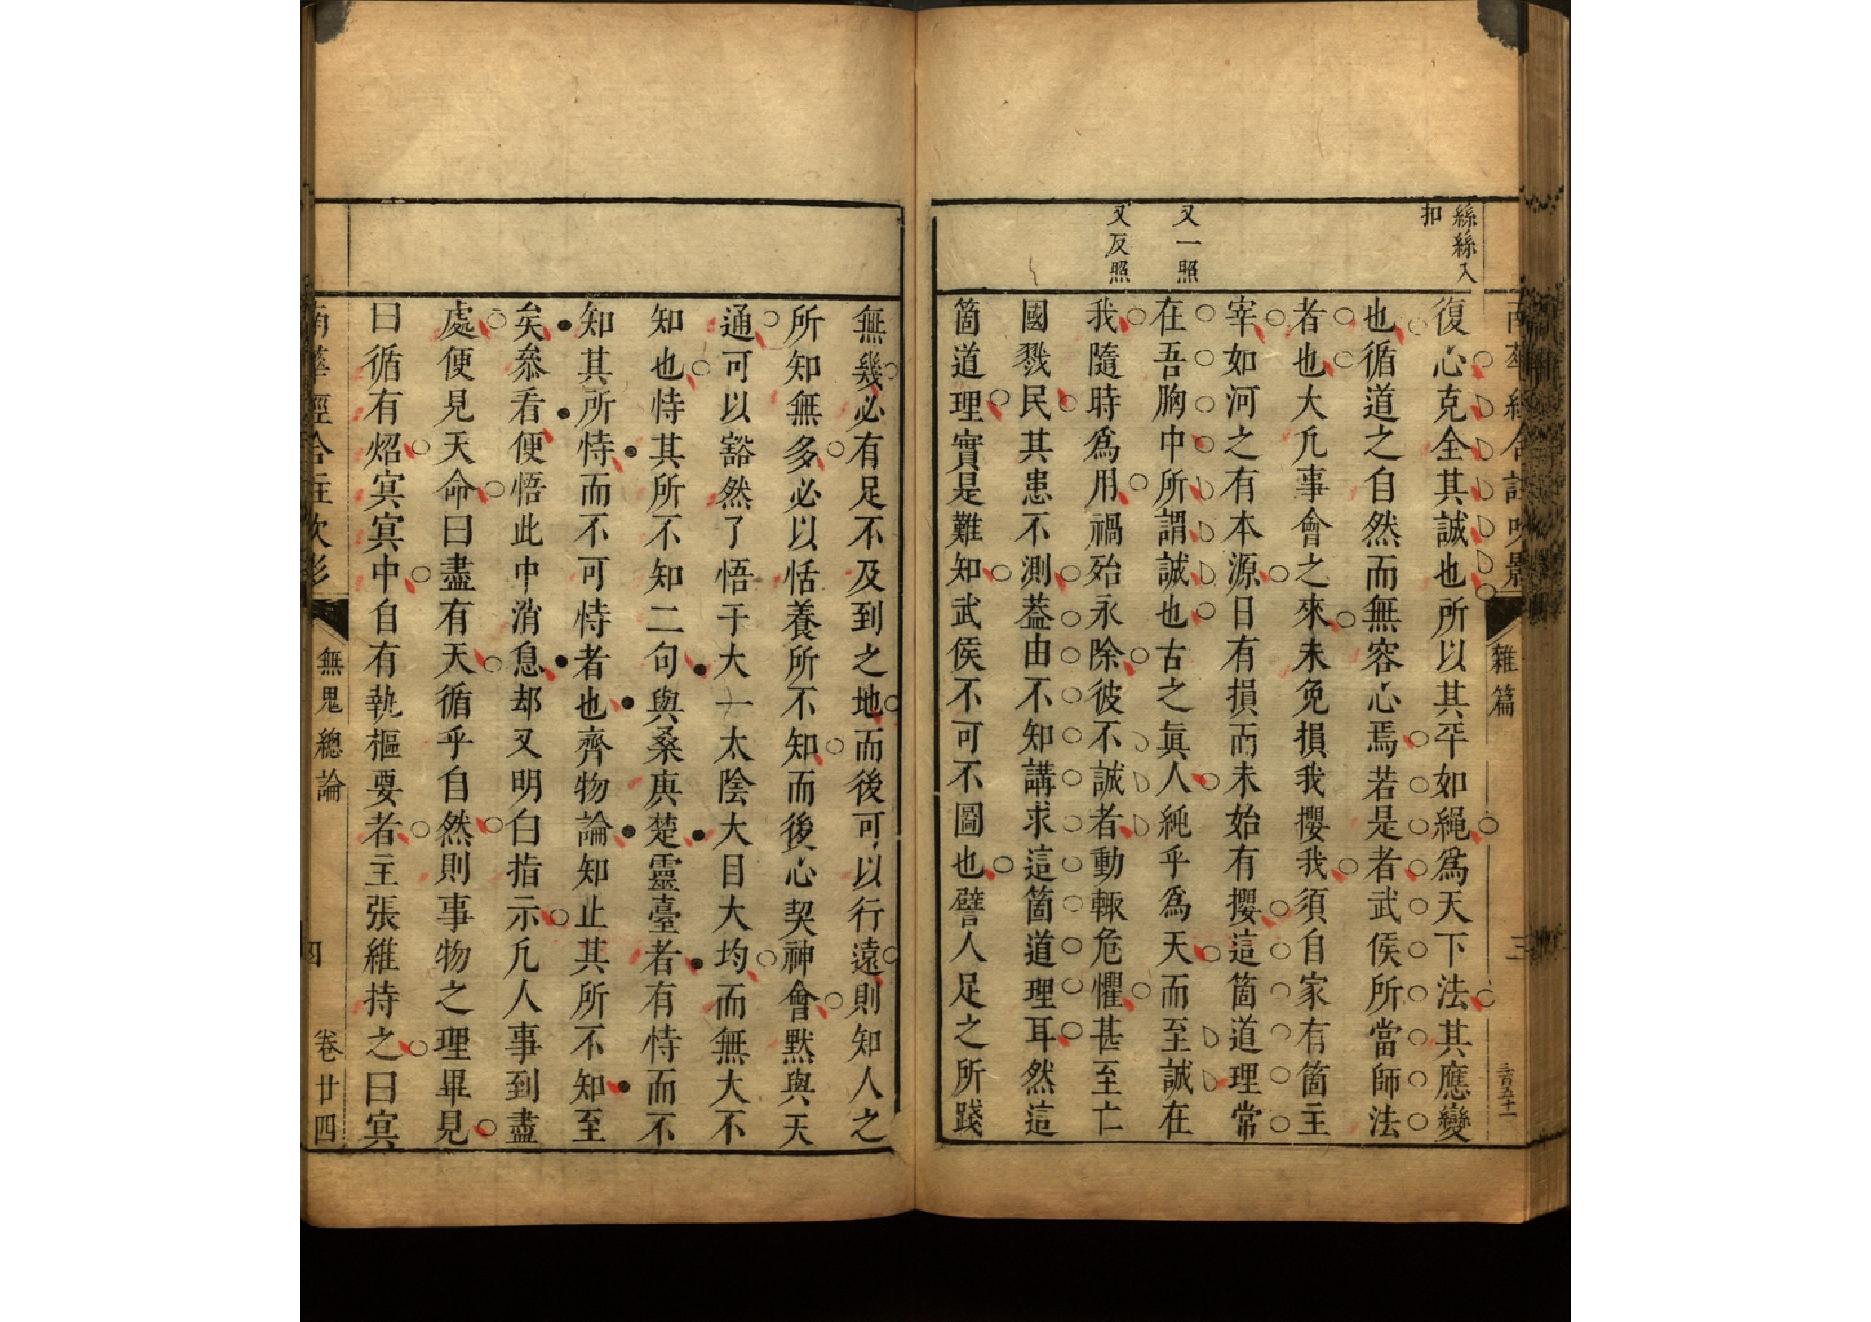 絲絲入
扣
又一照
又反照
雜篇
三
復心克全其誠也所以其平如繩爲天下法其應變
也循道之自然而無容心焉若是者武侯所當師法
者也大凡事會之來未免損我攖我須自家有箇主
宰如河之有本源日有損而未始有攖這箇道理常
在吾胸中所謂誠也古之眞人純乎爲天而至誠在
我隨時爲用禍殆永除彼不誠者動輒危懼甚至亡
國戮民其患不測葢由不知講求這箇道理耳然這
箇道理實是難知武侯不可不圖也譬人足之所踐
無幾必有足不及到之地而後可以行遠則知人之
所知無多必以恬養所不知而後心契神會默與天
通可以豁然了悟于大一太陰大目大均而無大不
知也恃其所不知二句與桑庚楚靈臺者有恃而不
知其所恃而不可恃者也齊物論知止其所不知至
矣叅看便悟此中消息却又明白指示凡人事到盡
處便見天命曰盡有天循乎自然則事物之理畢見
曰循有炤冥冥中自有執樞要者主張維持之曰冥
無鬼總論
四
卷廿四